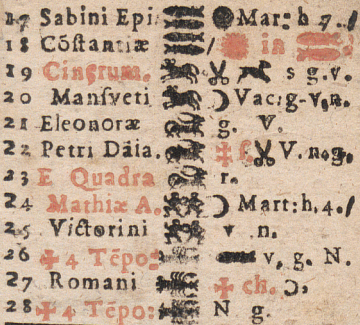 17 Sabini Epi. Mar: h 7./
18 Cõſtantiæ / in
19 Cinerum. s g. v.
20 Manſveti Vac: g-v, n.
21 Eleonoræ g. V.
22 Petri Dãia. f. V. n. g.
23 E Quadra r.
24 Mathiæ A. Mart: h. 4./
25 Victorini v n.
26 4 Tẽpo: v, g. N.
27 Romani ch.
28 4 Tẽpo: N g.